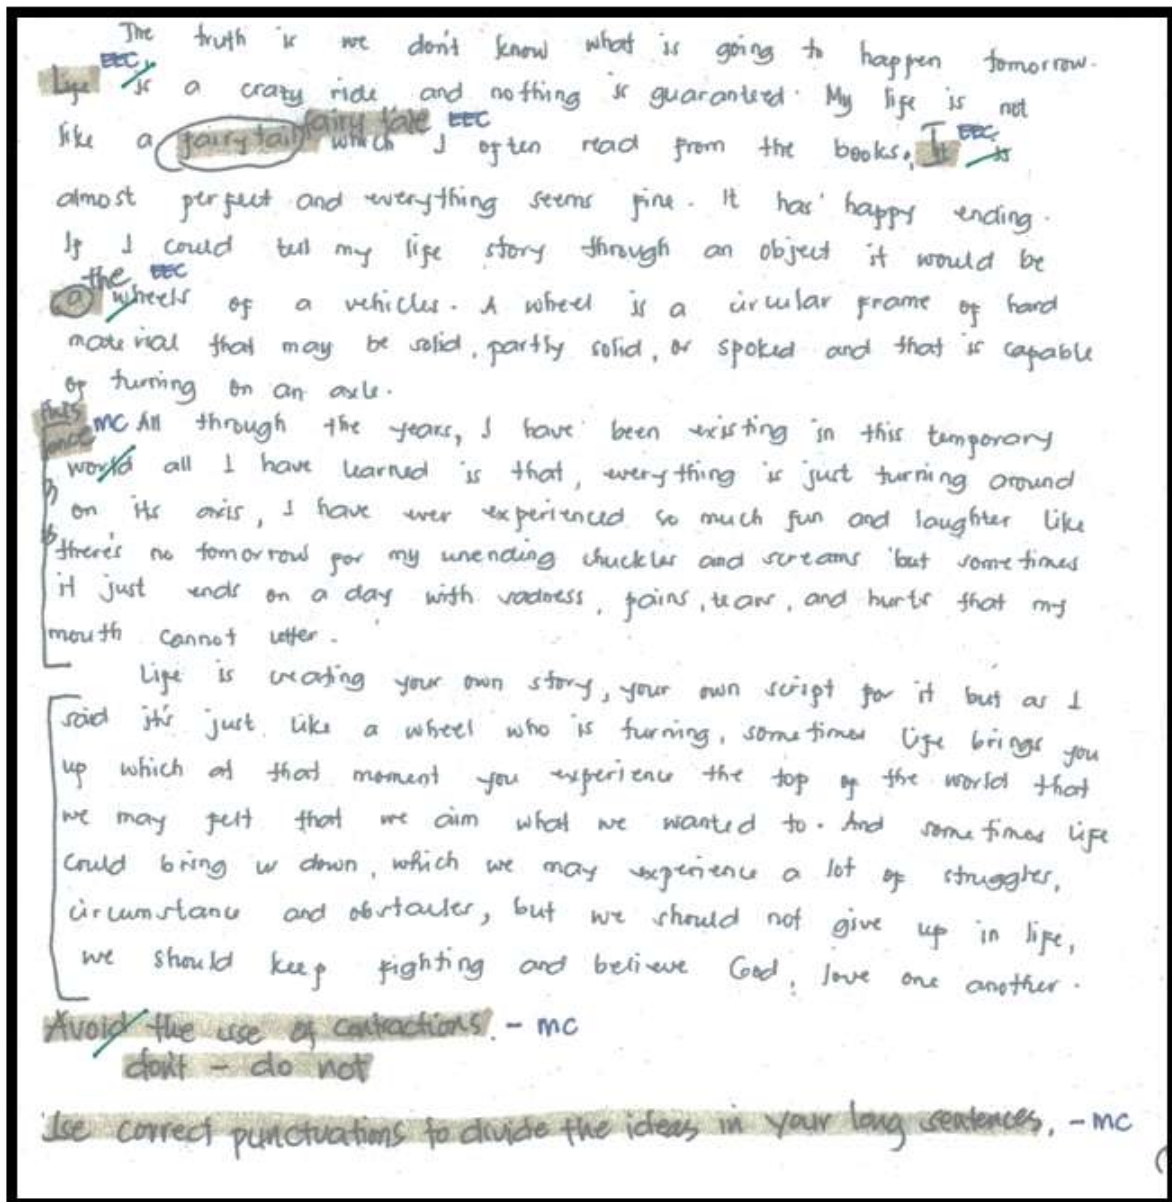 The truth is we don't know what is going to happen tomorrow.
EEC
Life is a crazy ride and nothing is guaranteed. My life is not
fairy tale EEC EEC
like a fairy tail which I often read from the books. It is
almost perfect and everything seems fine. It has happy ending.
If I could tell my life story through an object it would be
the EEC
a wheels of a vehicles. A wheel is a circular frame of hard
material that may be solid, partly solid, or spoked and that is capable
of turning on an axle.
MC All through the years, I have been existing in this temporary
world all I have learned is that, everything is just turning around
on its axis, I have ever experienced so much fun and laughter like
there's no tomorrow for my unending chuckles and screams but sometimes
it just ends on a day with sadness, pains, tears, and hurts that my
mouth cannot utter.
Life is creating your own story, your own script for it but as I
said it's just like a wheel who is turning, sometimes life brings you
up which at that moment you experience the top of the world that
we may felt that we aim what we wanted to. And sometimes life
could bring us down, which we may experience a lot of struggles,
circumstance and obstacles, but we should not give up in life,
we should keep fighting and believe God, love one another.
Avoid the use of contractions. - MC
don't - do not
Use correct punctuations to divide the ideas in your long sentences. - MC